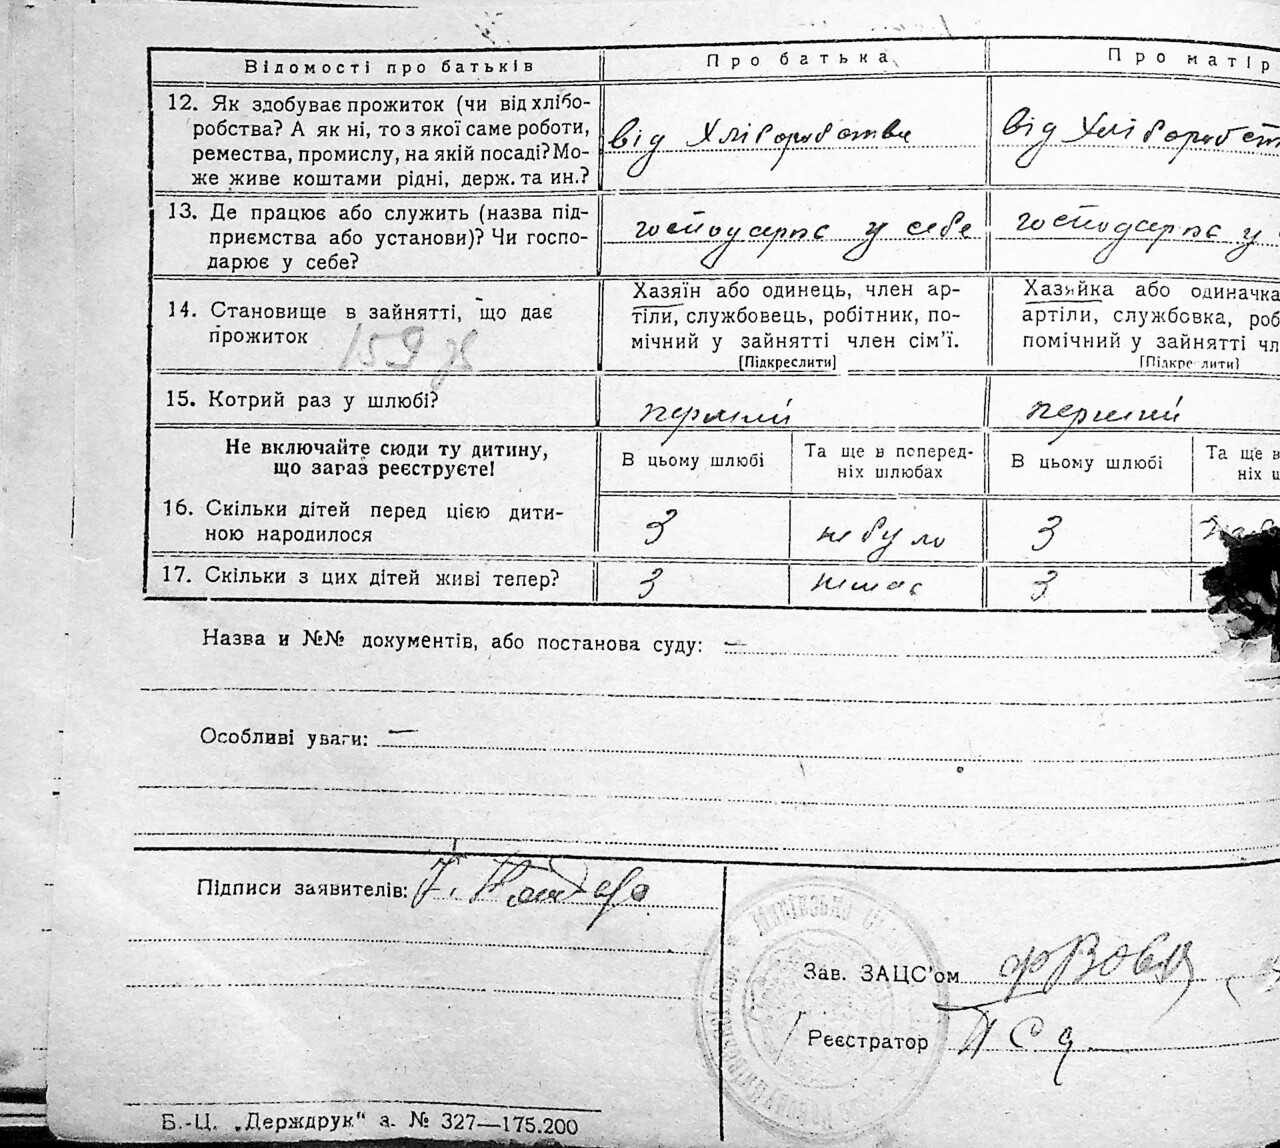 Відомості про батьків
Про батька
Про матір
12. Як здобуває прожиток (чи від хлібо-
робства? А як ні, то з якої саме роботи,
ремества, промислу, на якій посаді? Мо-
же живе коштами рідні, держ. та ин.?
від Хліборобства
від Хліборобст
13. Де працює або служить (назва під-
приємства або установи)? Чи госпо-
дарює у себе?
господарює у себе
господарює у
14. Становище в зайнятті, що дає
прожиток
159
Хазяїн або одинець, член ар-
тіли, службовець, робітник, по-
мічний у зайнятті член сім’ї.
[Підкреслити]
Хазяйка або одиначка
артіли, службовка, роб
помічний у зайнятті чл
[Підкреслити]
15. Котрий раз у шлюбі?
перший
перший
Не включайте сюди ту дитину,
що зараз реєструєте!
В цьому шлюбі
Та ще в поперед-
ніх шлюбах
В цьому шлюбі
Та ще в
ніх ш
16. Скільки дітей перед цією дити-
ною народилося
3
не було
3
17. Скільки з цих дітей живі тепер?
3
немає
3
Назва и №№ документів, або постанова суду: —
Особливі уваги: —
Підписи заявителів:
Зав. ЗАЦС’ом
Реєстратор
Б.-Ц. „Держдрук“ з. № 327—175.200